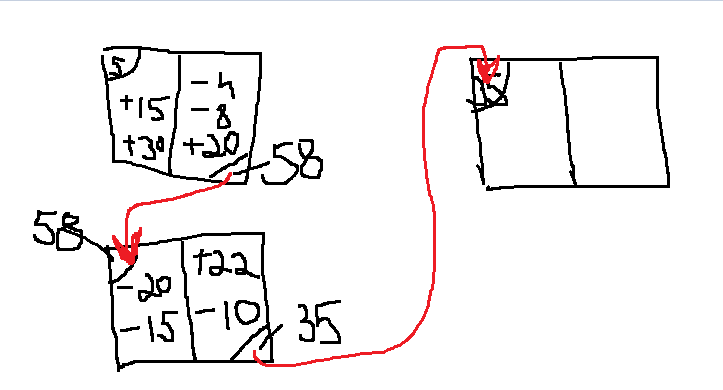 5
+15
+30
-4
-8
+20
58
58
-20
-15
+22
-10
35